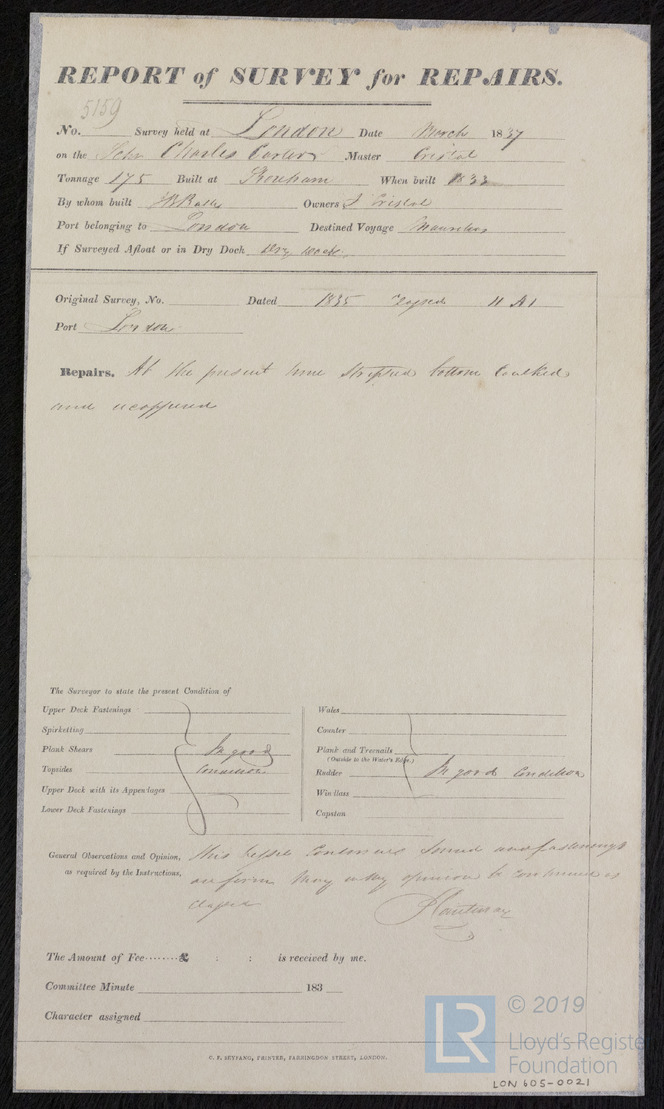 REPORT of SURVEY for REPAIRS.
5159
No. Survey held at London Date March 1837
on the Schr Charles Carter Master Cristal
Tonnage 175 Built at Shoreham When built 1833
By whom built Owners J Cristal
Port belonging to London Destined Voyage Mauritius
If Surveyed Afloat or in Dry Dock Dry Dock
Original Survey, No. Dated 1835 Classed 11 A1
Port London
Repairs. At the present time stripped bottom caulked
and recoppered
The Surveyor to state the present Condition of
Upper Deck Fastenings
Spirketting
Plank Shears In good
Topsides Condition
Upper Deck with its Appendages
Lower Deck Fastenings
Wales
Counter
Plank and Treenails
(Outside to the Water's Edge.)
Rudder In good Condition
Windlass
Capstan
General Observations and Opinion, This Vessel Continues Sound and fastenings
as required by the Instructions, are firm May in my opinion be continued as
classed
The Amount of Fee ........ £ : : is received by me.
Committee Minute 183
Character assigned
C. F. SEYFANG, PRINTER, FARRINGDON STREET, LONDON.
LR © 2019
Lloyd's Register
Foundation
LON 605-0021